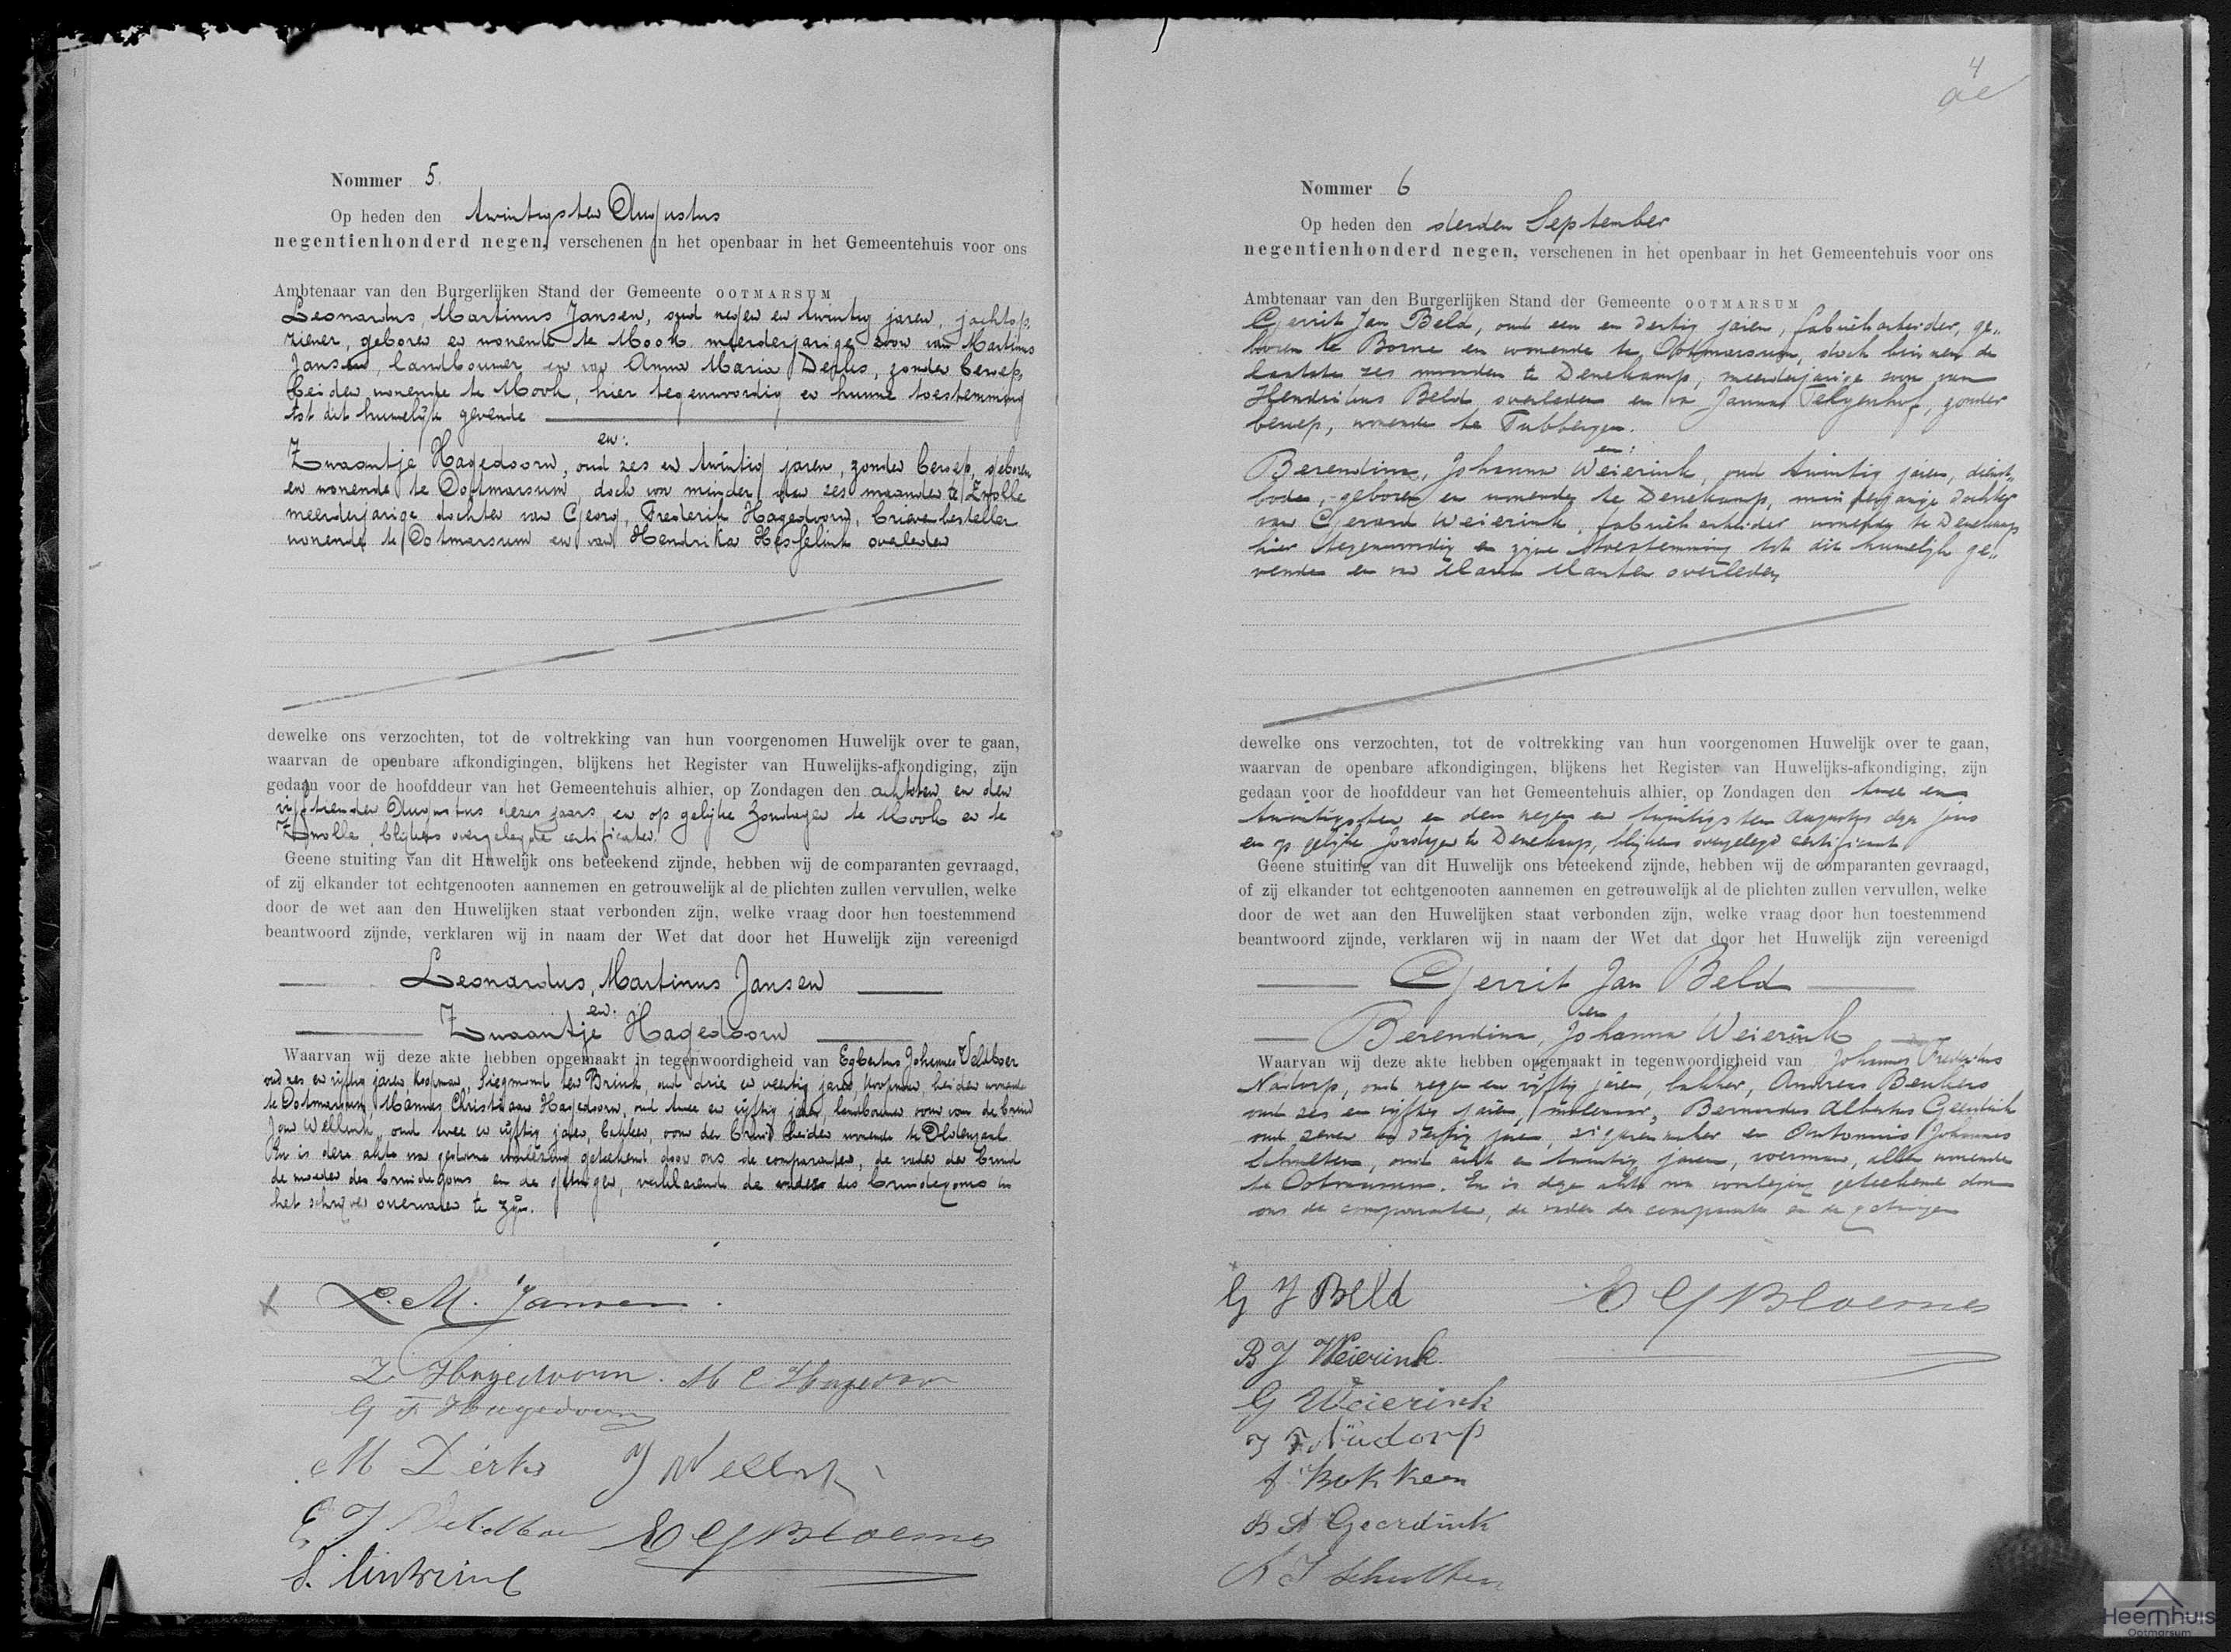 Nommer 5.
Op heden den twintigsten Augustus
negentienhonderd negen, verschenen in het openbaar in het Gemeentehuis voor ons
Ambtenaar van den Burgerlijken Stand der Gemeente OOTMARSUM
Leonardus, Martinus Jansen, oud negen en twintig jaren, jachtop,
ziener, geboren en wonende te Mook meerderjarige zoon van Martinus
Jansen, landbouwer en van Anna Maria Derks, zonder beroep,
beiden wonende te Mook, hier tegenwoordig en hunne toestemming
tot dit huwelijk gevende
en:
Zwaantje Hagedoorn, oud zes en twintig jaren, zonder beroep, geboren
en wonende te Ootmarsum, doch voor minder dan zes maanden te Zwolle
meerderjarige dochter van Georg, Frederik Hagedoorn, brievenbesteller
wonende te Ootmarsum en van Hendrika Hesselink overleden
dewelke ons verzochten, tot de voltrekking van hun voorgenomen Huwelijk over te gaan,
waarvan de openbare afkondigingen, blijkens het Register van Huwelijks-afkondiging, zijn
gedaan voor de hoofddeur van het Gemeentehuis alhier, op Zondagen den achtsten en den
vijftienden Augustus dezes jaars en op gelijke Zondagen te Mook en te
Zwolle, blijkens overgelegde certificaten.
Geene stuiting van dit Huwelijk ons beteekend zijnde, hebben wij de comparanten gevraagd,
of zij elkander tot echtgenooten aannemen en getrouwelijk al de plichten zullen vervullen, welke
door de wet aan den Huwelijken staat verbonden zijn, welke vraag door hen toestemmend
beantwoord zijnde, verklaren wij in naam der Wet dat door het Huwelijk zijn vereenigd
Leonardus, Martinus Jansen
en.
Zwaantje Hagedoorn
Waarvan wij deze akte hebben opgemaakt in tegenwoordigheid van Egbertus Johannes Veldboer
oud zes en vijftig jaren, koopman, Siegmond ten Brink, oud drie en veertig jaren koopman, beiden wonende
te Ootmarsum, Mannes Christiaan Hagedoorn, oud twee en vijftig jaren, landbouwer oom van de bruid
Jan Wellink, oud twee en vijftig jaren, bakker, oom der bruid beiden wonende te Oldenzaal
En is deze akte na gedane voorlezing geteekend door ons de comparanten, de vader der bruid
de moeder des bruidegoms en de getuigen, verklarende de vader des bruidegoms in
het schrijven onervaren te zijn.
L. M. Jansen.
Z. Hagedoorn. M C Hagedoorn
G F Hagedoorn
M Derks J Wellink
E J Veldboer E G Bloemen
4
Nommer 6
Op heden den derden September
negentienhonderd negen, verschenen in het openbaar in het Gemeentehuis voor ons
Ambtenaar van den Burgerlijken Stand der Gemeente OOTMARSUM
Gerrit Jan Beld, oud een en dertig jaren, fabriekarbeider, ge„
boren te Borne en wonende te Ootmarsum, doch binnen de
laatste zes maanden te Denekamp, meerderjarige zoon van
Hendrikus Beld overleden en van Janna Telgenhof, zonder
beroep, wonende te Tubbergen.
en:
Berendina, Johanna Weierink, oud twintig jaren, dienst„
bode, geboren en wonende te Denekamp, minderjarige dochter
van Gerard Weierink, fabriekarbeider wonende te Denekamp
hier tegenwoordig en zijne toestemming tot dit huwelijk ge„
vende en van Maria overleden
dewelke ons verzochten, tot de voltrekking van hun voorgenomen Huwelijk over te gaan,
waarvan de openbare afkondigingen, blijkens het Register van Huwelijks-afkondiging, zijn
gedaan voor de hoofddeur van het Gemeentehuis alhier, op Zondagen den twee en
twintigsten en den negen en twintigsten Augustus dezes jaars
en op gelijke Zondagen te Denekamp, blijkens overgelegd certificaat
Geene stuiting van dit Huwelijk ons beteekend zijnde, hebben wij de comparanten gevraagd,
of zij elkander tot echtgenooten aannemen en getrouwelijk al de plichten zullen vervullen, welke
door de wet aan den Huwelijken staat verbonden zijn, welke vraag door hen toestemmend
beantwoord zijnde, verklaren wij in naam der Wet dat door het Huwelijk zijn vereenigd
Gerrit Jan Beld
en
Berendina, Johanna Weierink
Waarvan wij deze akte hebben opgemaakt in tegenwoordigheid van Johannes Frederikus
Nüdorp, oud negen en vijftig jaren, bakker, Andreas
oud zes en vijftig jaren, molenaar, Bernardus Albertus Geerdink
oud zeven en dertig jaren, sigarenmaker en Antonius Johannes
Scholten, oud acht en twintig jaren, voerman, allen wonende
te Ootmarsum. En is deze akte na voorlezing geteekend door
ons de comparanten, de vader der comparante en de getuigen
G J Beld E G Bloemen
B J Weierink
G Weierink
J F Nüdorp
A Bekkeen
B A Geerdink
A J Scholten
Heemhuis
Ootmarsum